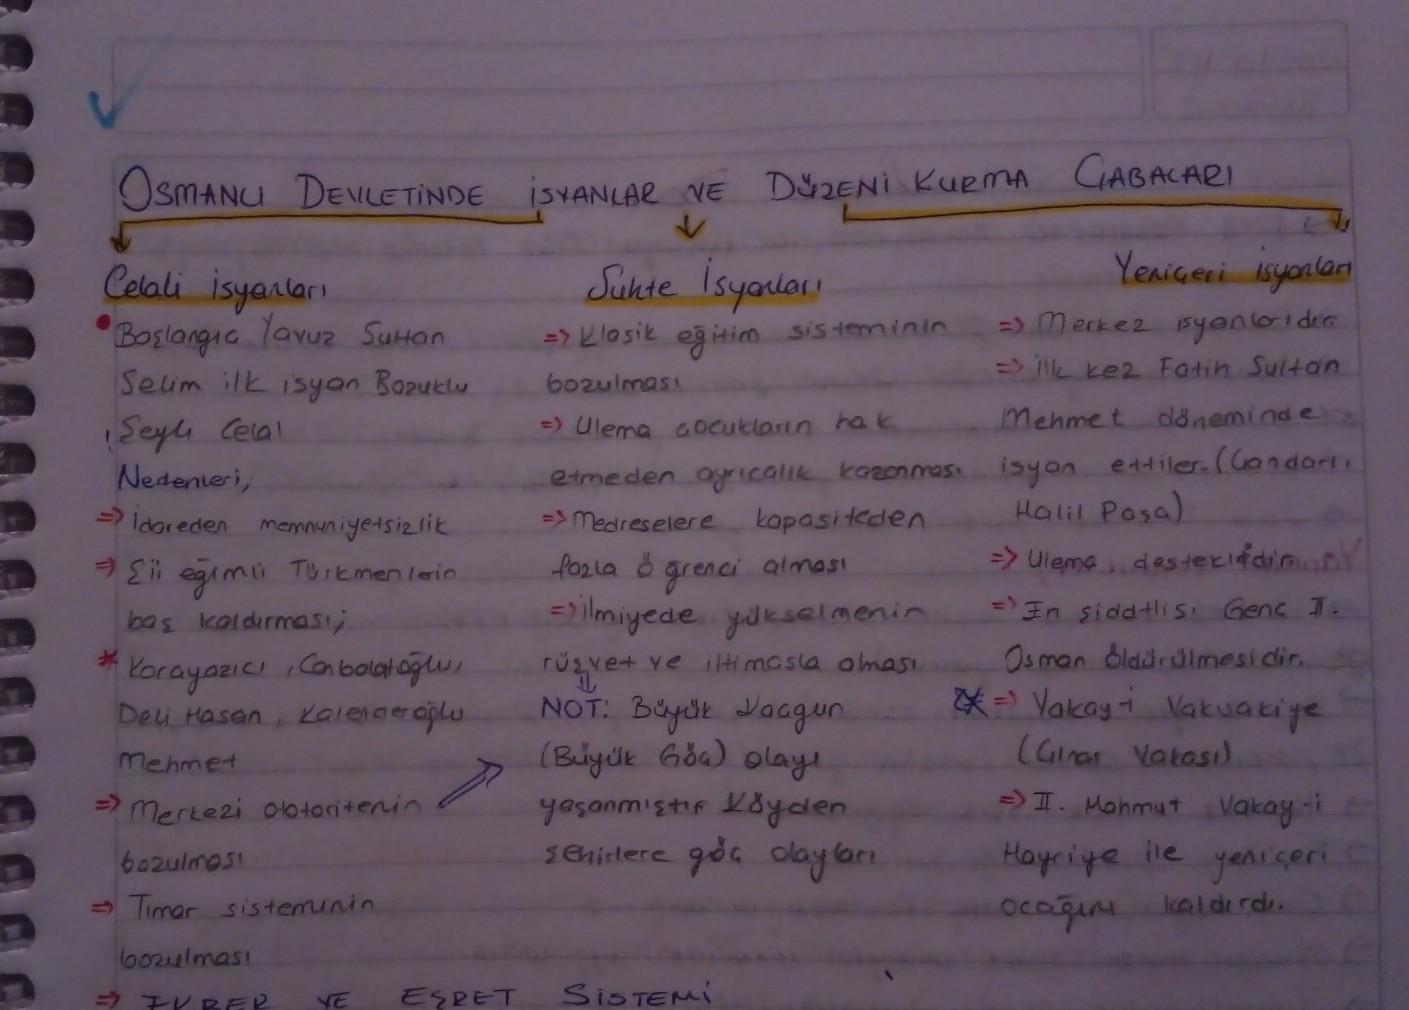 OSMANLI DEVLETİNDE İSYANLAR VE DÜZENİ KURMA ÇABALARI
Celali isyanları
Başlangıç Yavuz Sultan
Selim ilk isyan Bozuklu
Şeyh Celal
Nedenleri;
=> İdareden memnuniyetsizlik
=> Şii eğimli Türkmenlerin
baş kaldırması;
* Karayazıcı, Canbolatoğlu,
Deli Hasan, Kalenderoğlu
Mehmet
=> Merkezi otoritenin
bozulması
=> Tımar sisteminin
bozulması
Suhte İsyanları
=> Klasik eğitim sisteminin
bozulması
=> Ulema çocukların hak
etmeden ayrıcalık kazanması
=> Medreselere kapasiteden
fazla öğrenci alması
=> ilmiyede yükselmenin
rüşvet ve iltimasla olması
NOT: Büyük Kaçgun
(Büyük Göç) olayı
yaşanmıştır Köyden
şehirlere göç olayları
Yeniçeri isyanları
=> Merkez isyanlarıdır
=> ilk kez Fatih Sultan
Mehmet döneminde
isyan ettiler. (Çandarlı
Halil Paşa)
=> Ulema
=> En şiddetlisi Genç II.
Osman öldürülmesidir.
=> Vakay-i Vakvakiye
(Çınar Vakası)
=> II. Mahmut Vakay-i
Hayriye ile yeniçeri
ocağını kaldırdı.
=> EKBER VE EŞRET SİSTEMİ